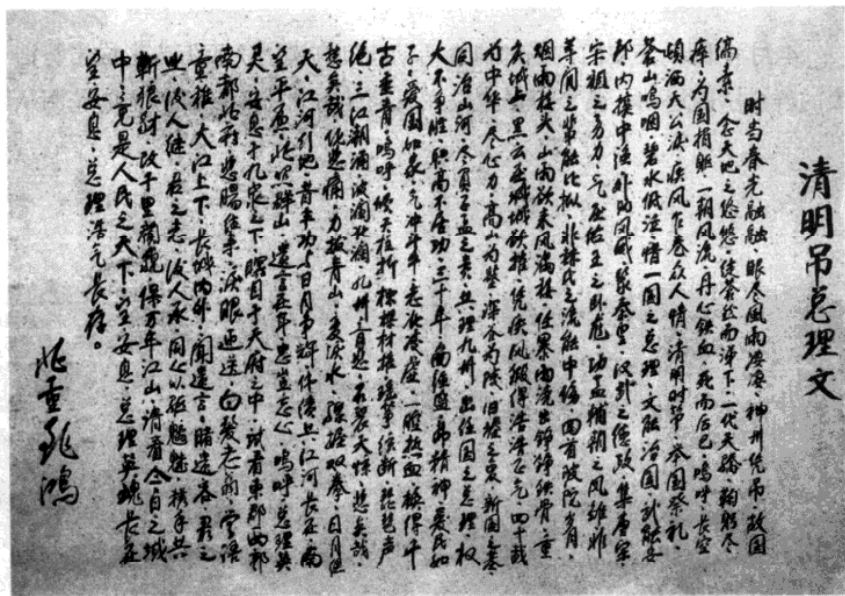 清明吊总理文
时当春光融融·眼尽风雨凄凄·神州凭吊·故国
缟素·念天地之悠悠·徒苍然而涕下·一代天骄·鞠躬尽
瘁·为国捐躯·一朝风流·丹心铁血·死而后已·呜呼·长空
倾洒天公泪·疾风乍卷众人情·清明时节·举国祭礼·
苍山呜咽·碧水低泣·惜一国之总理·文能治国·武能安
邦·内揍中·外御风威·蒙秦皇·汉武之德政·集唐宗·
宋祖之勇力·气压佑王之卧龙·功盖辅朝之凤雏·非
等闲之辈能比拟·非林氏之流能中伤·回首岁月·
烟雨楼头·山雨欲来风满楼·任暴雨洗出铮铮铁骨·重
庆城上·黑云压城城欲摧·凭疾风锻得浩浩正气·四十载
为中华·尽心力·高山为·深谷为陵·旧之哀·新国之
同治山河·尽负之责·共理九州·出任国之总理·权
大不争雄·职高不居功·三十年·南征精神·爱民如
子·爱国如家·气冲斗牛·志比凌虚·一腔热血·换得千
古垂青·呜呼·倾天柱折·栋梁材摧·瑶琴弦断·琵琶声
绝·三江潮涌·波滴浪涌·九州齐悲·石裂天惊·悲矣哉·
愁矣哉·化悲痛·力拔青山·变泪水·双拳·日月
天·江河行地·昔年功与日月争辉·伟绩共江河长在·南
望平原·此照群山·遗言在耳·忠岂忘心·呜呼·总理英
灵·安息于九泉之下·瞑目于天府之中·试看东郡西郭·
南都北府·悲肠往事·泪眼迎送·白发老翁·学语
童稚·大江上下·长城内外·闻遗言·睹遗容·君之
·后人继·君之志·后人承·同心以砥魑魅·携手共
斩狼豺·改千里·保万年江山·清看今日之域
中·竟是人民之天下·望安息·总理英魂长在
望安息·总理浩气长存。